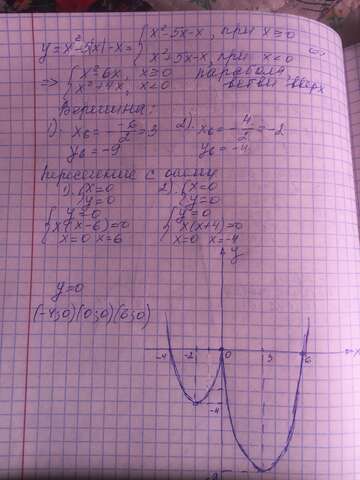 y=x²-5|x|-x= { x²-5x-x, при x≥0
x²+5x-x, при x<0 ⇔
⇒ { x²-6x, x≥0 парабола
x²+4x, x<0 ветви вверх
Вершина:
1). xв = - -6/2 = 3 2). xв = - 4/2 = -2
yв = -9 yв = -4
Пересечение с
1). { x=0 2). { x=0
y=0 y=0
{ y=0 { y=0
x(x-6)=0 x(x+4)=0
x=0 x=6 x=0 x=-4
y
y=0
(-4;0)(0;0)(6;0)
-4 -2 0 3 6 x
-4
-9